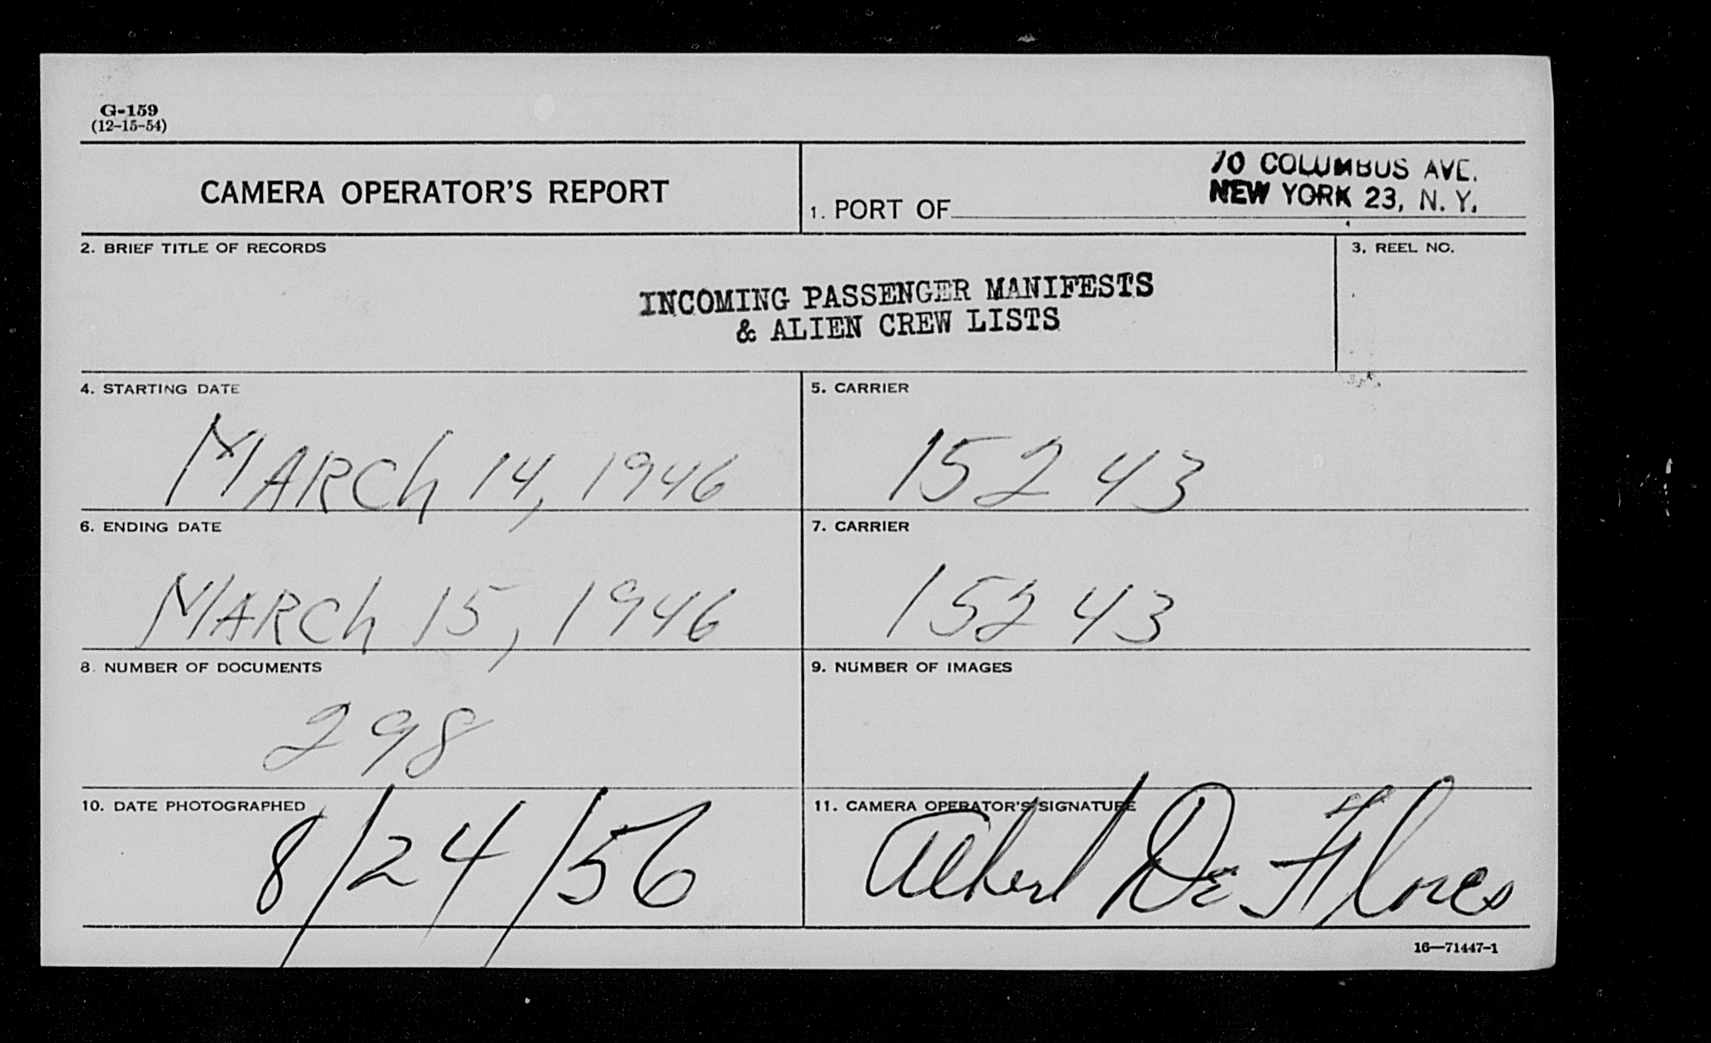 G-159
(12-15-54)
CAMERA OPERATOR'S REPORT
1. PORT OF
70 COLUMBUS AVE.
NEW YORK 23, N. Y.
2. BRIEF TITLE OF RECORDS
INCOMING PASSENGER MANIFESTS
& ALIEN CREW LISTS
3. REEL NO.
4. STARTING DATE
MARCh 14, 1946
5. CARRIER
15243
6. ENDING DATE
MARCh 15, 1946
7. CARRIER
15243
8. NUMBER OF DOCUMENTS
298
9. NUMBER OF IMAGES
10. DATE PHOTOGRAPHED
8/24/56
11. CAMERA OPERATOR'S SIGNATURE
Albert De Flores
16—71447-1